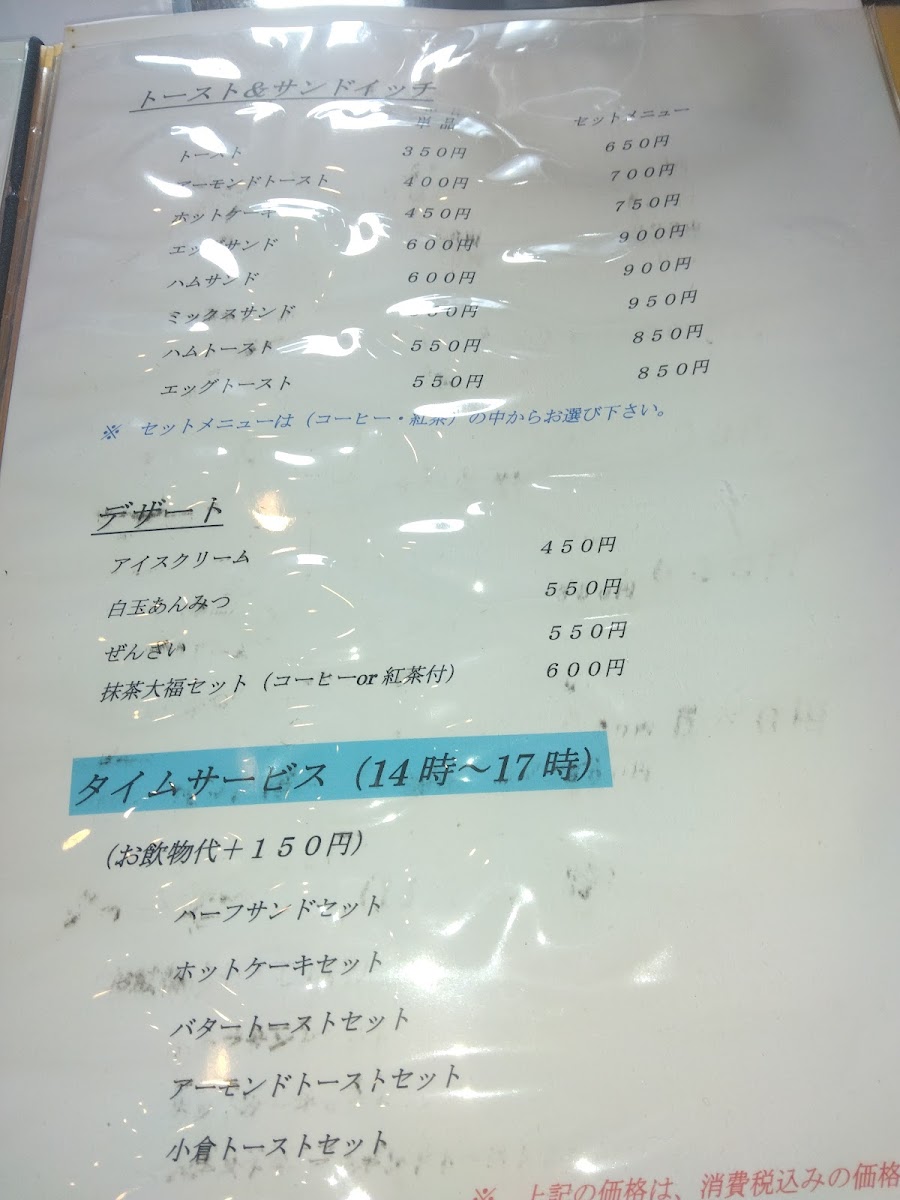 トースト&サンドイッチ
単品 セットメニュー
トースト 350円 650円
アーモンドトースト 400円 700円
ホットケーキ 450円 750円
エッグサンド 600円 900円
ハムサンド 600円 900円
ミックスサンド 50円 950円
ハムトースト 550円 850円
エッグトースト 550円 850円
※ セットメニューは(コーヒー・紅茶)の中からお選び下さい。
デザート
アイスクリーム 450円
白玉あんみつ 550円
ぜんざい 550円
抹茶大福セット(コーヒーor紅茶付) 600円
タイムサービス(14時~17時)
(お飲物代+150円)
ハーフサンドセット
ホットケーキセット
バタートーストセット
アーモンドトーストセット
小倉トーストセット
※ 上記の価格は、消費税込みの価格